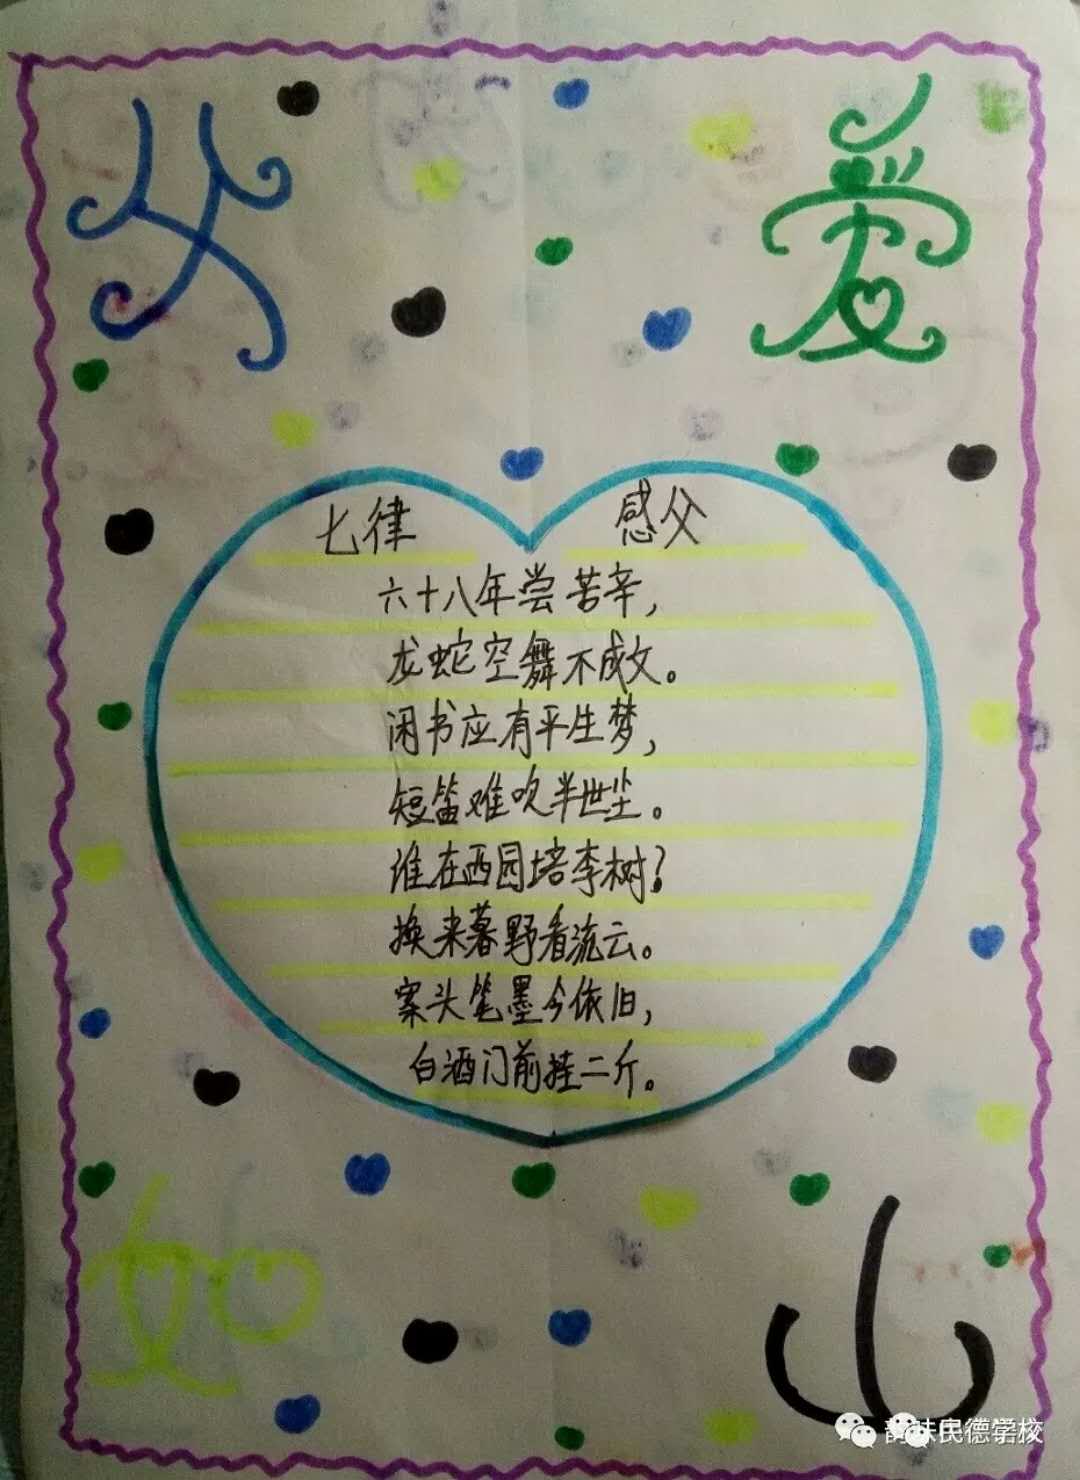 父 爱
七律 感父
六十八年尝苦辛，
龙蛇空舞不成文。
闲书应有平生梦，
短笛难吹半世尘。
谁在西园培李树？
换来暮野看流云。
案头笔墨今依旧，
白酒门前挂二斤。
如 山
韵味民德学校